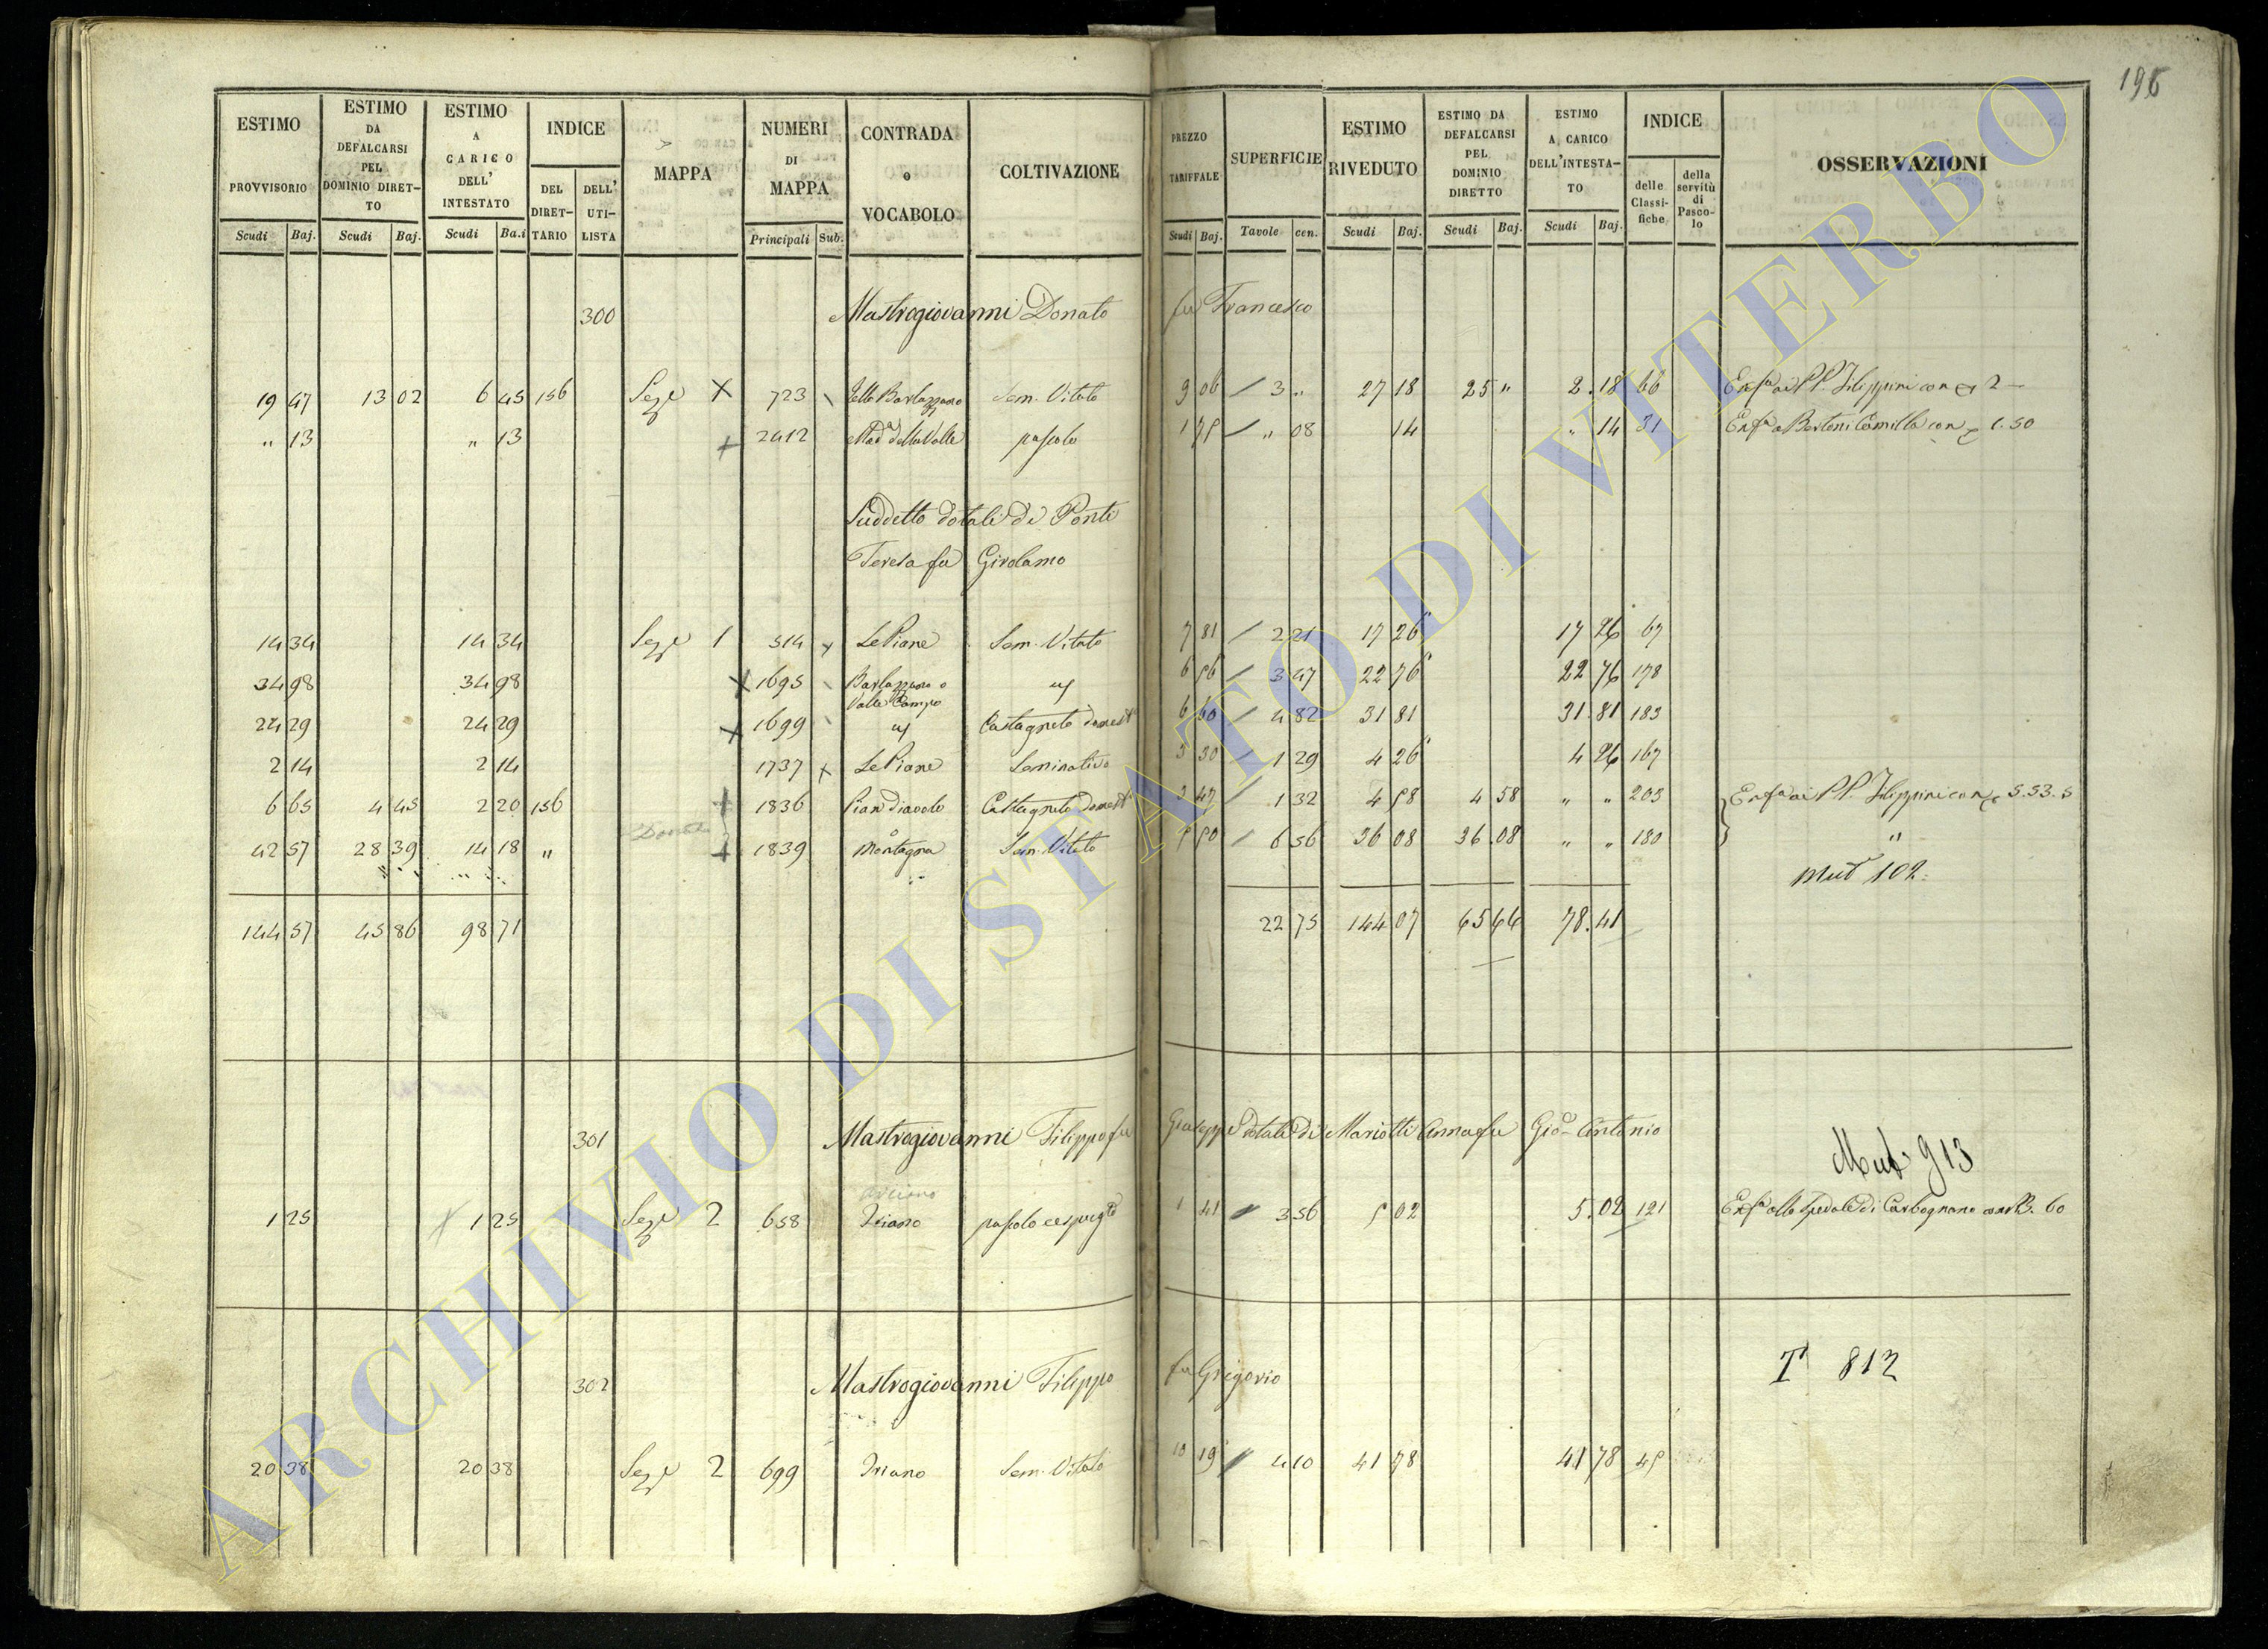 196
ESTIMO PROVVISORIO Scudi Baj. ESTIMO DA DEFALCARSI PEL DOMINIO DIRETTO Scudi Baj. ESTIMO A CARICO DELL' INTESTATO Scudi Ba.i INDICE DEL DIRETTARIO DELL' UTILISTA MAPPA NUMERI DI MAPPA Principali Sub. CONTRADA o VOCABOLO COLTIVAZIONE PREZZO TARIFFALE Scudi Baj. SUPERFICIE Tavole cen. ESTIMO RIVEDUTO Scudi Baj. ESTIMO DA DEFALCARSI PEL DOMINIO DIRETTO Scudi Baj. ESTIMO A CARICO DELL'INTESTATO Scudi Baj. INDICE delle Classifiche della servitù di Pascolo OSSERVAZIONI
300 Mastrogiovanni Donato fu Francesco
19 47 13 02 6 45 156 Sez.e X 723 Sem. Vitato 9 06 3 " 27 18 25 " 2.18 66 ai PP. Filippini con 2 —
" 13 " 13 + 2412 Mad.a della Valle pascolo 1 75 " 08 14 " 14 31 a Bertoni Camilla con 1.50
Suddetto dotali di Ponti
Teresa fu Girolamo
14 34 14 34 Sez.e 1 514 Le Piane Sem. Vitato 7 81 2 21 17 26 17 26 67
34 98 34 98 X 1695 Barlozzano o Valle Campo 6 56 3 47 22 76 22 76 178
24 29 24 29 X 1699 Castagneto domest.o 6 60 4 82 31 81 31.81 183
2 14 2 14 1737 Le Piane Seminativo 3 30 1 29 4 26 4 26 167
6 65 4 45 2 20 156 + 1836 Pian diavolo Castagneto domest.o 3 47 1 32 4 58 4 58 " " 203 ai PP. Filippini con 5.53.5
42 57 28 39 14 18 " + 1839 Montagna Sem. Vitato 5 50 6 56 36 08 36.08 " " 180 "
Mut 102.
144 57 45 86 98 71 22 75 144 07 65 66 78.41
301 Mastrogiovanni Filippo fu Giuseppe dotali di Mariotti Anna fu Gio. Antonio
Mut 913
arciano
1 25 1 25 Sez.e 2 658 Iriano pascolo cespugto 1 41 3 56 5 02 5.02 121 allo Spedale di Carbognano con B. 60
302 Mastrogiovanni Filippo fu Grigorio
T 812
20 38 20 38 Sez.e 2 699 Iriano Sem. Vitato 10 19 4 10 41 78 41 78 45
ARCHIVIO DI STATO DI VITERBO